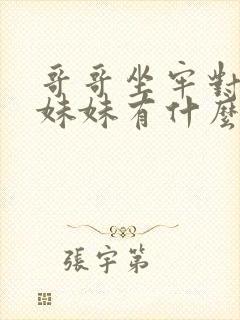 哥哥坐牢對
妹妹有什麼
張宇第